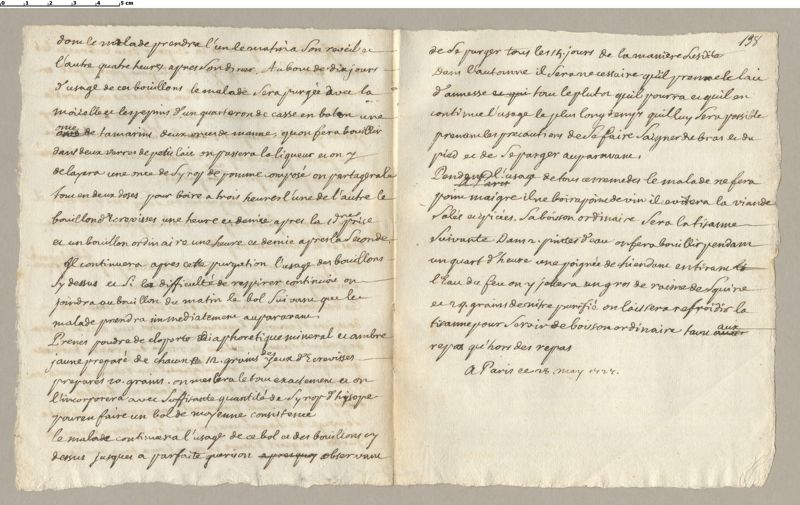 0 1 2 3 4 5 cm
dont le malade prendra l'un le matin a son reveil et
l'autre quatre heures apres son diner. Au bout de dix jours
d'usage de ces bouillons le malade sera purgée avec la
moëlle et les pepins d'un quarteron de casse en baton une
once de tamarins deux onces de manne, qu'on fera bouillir
dans deux verres de petit lait on passera la liqueur et on y
delayera une once de syrop de pomme composé on partagera le
tout en deux doses pour boire a trois heures l'une de l'autre le
bouillon d'Ecrevisses une heure et demie apres la 1ere prise
et un bouillon ordinaire une heure et demie apres la Seconde.
Il continuera apres cette purgation l'usage des bouillons
cy dessus et Si la difficulté de respirer continüe on
joindra au bouillon du matin le bol Suivant que le
malade prendra immediatement auparavant.
Prenes poudre de cloporte diaphoretique mineral et ambre
jaune preparé de chacun 12. grains des yeux d'Ecrevisses
preparés 20. grains. on meslera le tout exactement et on
l'incorporera avec Suffisante quantité de Syrop d'hysope
pour en faire un bol de moyenne consistence
le malade continuera l'usage de ce bol et des bouillons cy
dessus jusques a parfaite guerison observant
138
de Se purger tous les 15. jours de la maniere Susdite
Dans l'automne il Sera necessaire qu'il prenne le lait
d'annesse tout le plutot qu'il pourra et qu'il en
continue l'usage le plus longtemps qu'il luy Sera possible
prenant les precautions de Se faire Saigner de bras et du
pied et de Se purger auparavant.
Pendant l'usage de tous ces remedes le malade ne fera
point maigre il ne boira point de vin il evitera la viande
Salée et épicées. Sa boisson ordinaire Sera la tisanne
Suivante Dans 2. pintes d'eau on fera bouillir pendant
un quart d'heure une poignée de chiendent en tirant
l'Eau du feu on y jettera un gros de racine de Squine
et 24 grains de nitre purifié on laissera refroidir la
tisanne pour Servir de boisson ordinaire tant aux
repas qu'hors des repas
A Paris ce 28. may